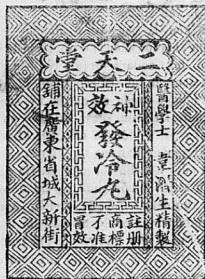 二天堂
醫學士 韋生精製
神效
發冷丸
註册
商標
不准
冒效
鋪在廣東省城大新街